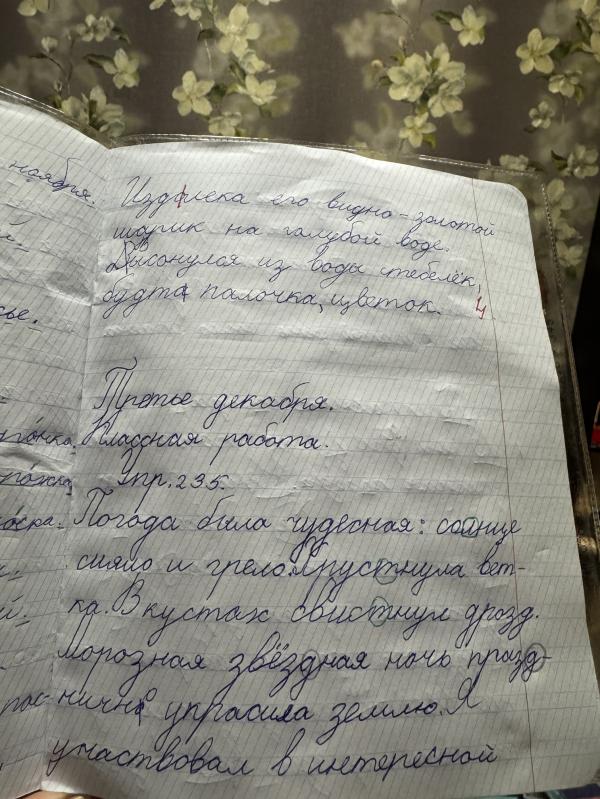 ноября.
Издалека его видно-золотой
шарик на голубой воде.
Высонулся из воды стебелёк,
будто палочка, цветок.
4
сье.
Третье декабря.
Классная работа.
Упр. 235.
Погода была чудесная: солнце
сияло и грело. Хрустнула вет-
ка. В кустах свистнул дрозд.
Морозная звёздная ночь празд-
нично украсила землю. Я
участвовал в интересной